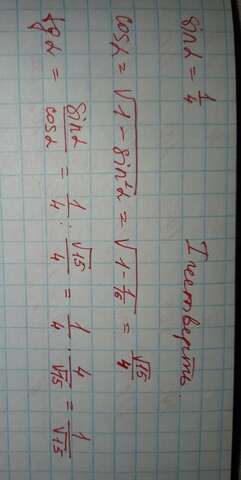 sin α = 1/4 I четверть.
cos α = √(1 - sin²α) = √(1 - 1/16) = √15/4
tg α = sin α/cos α = 1/4 : √15/4 = 1/4 · 4/√15 = 1/√15